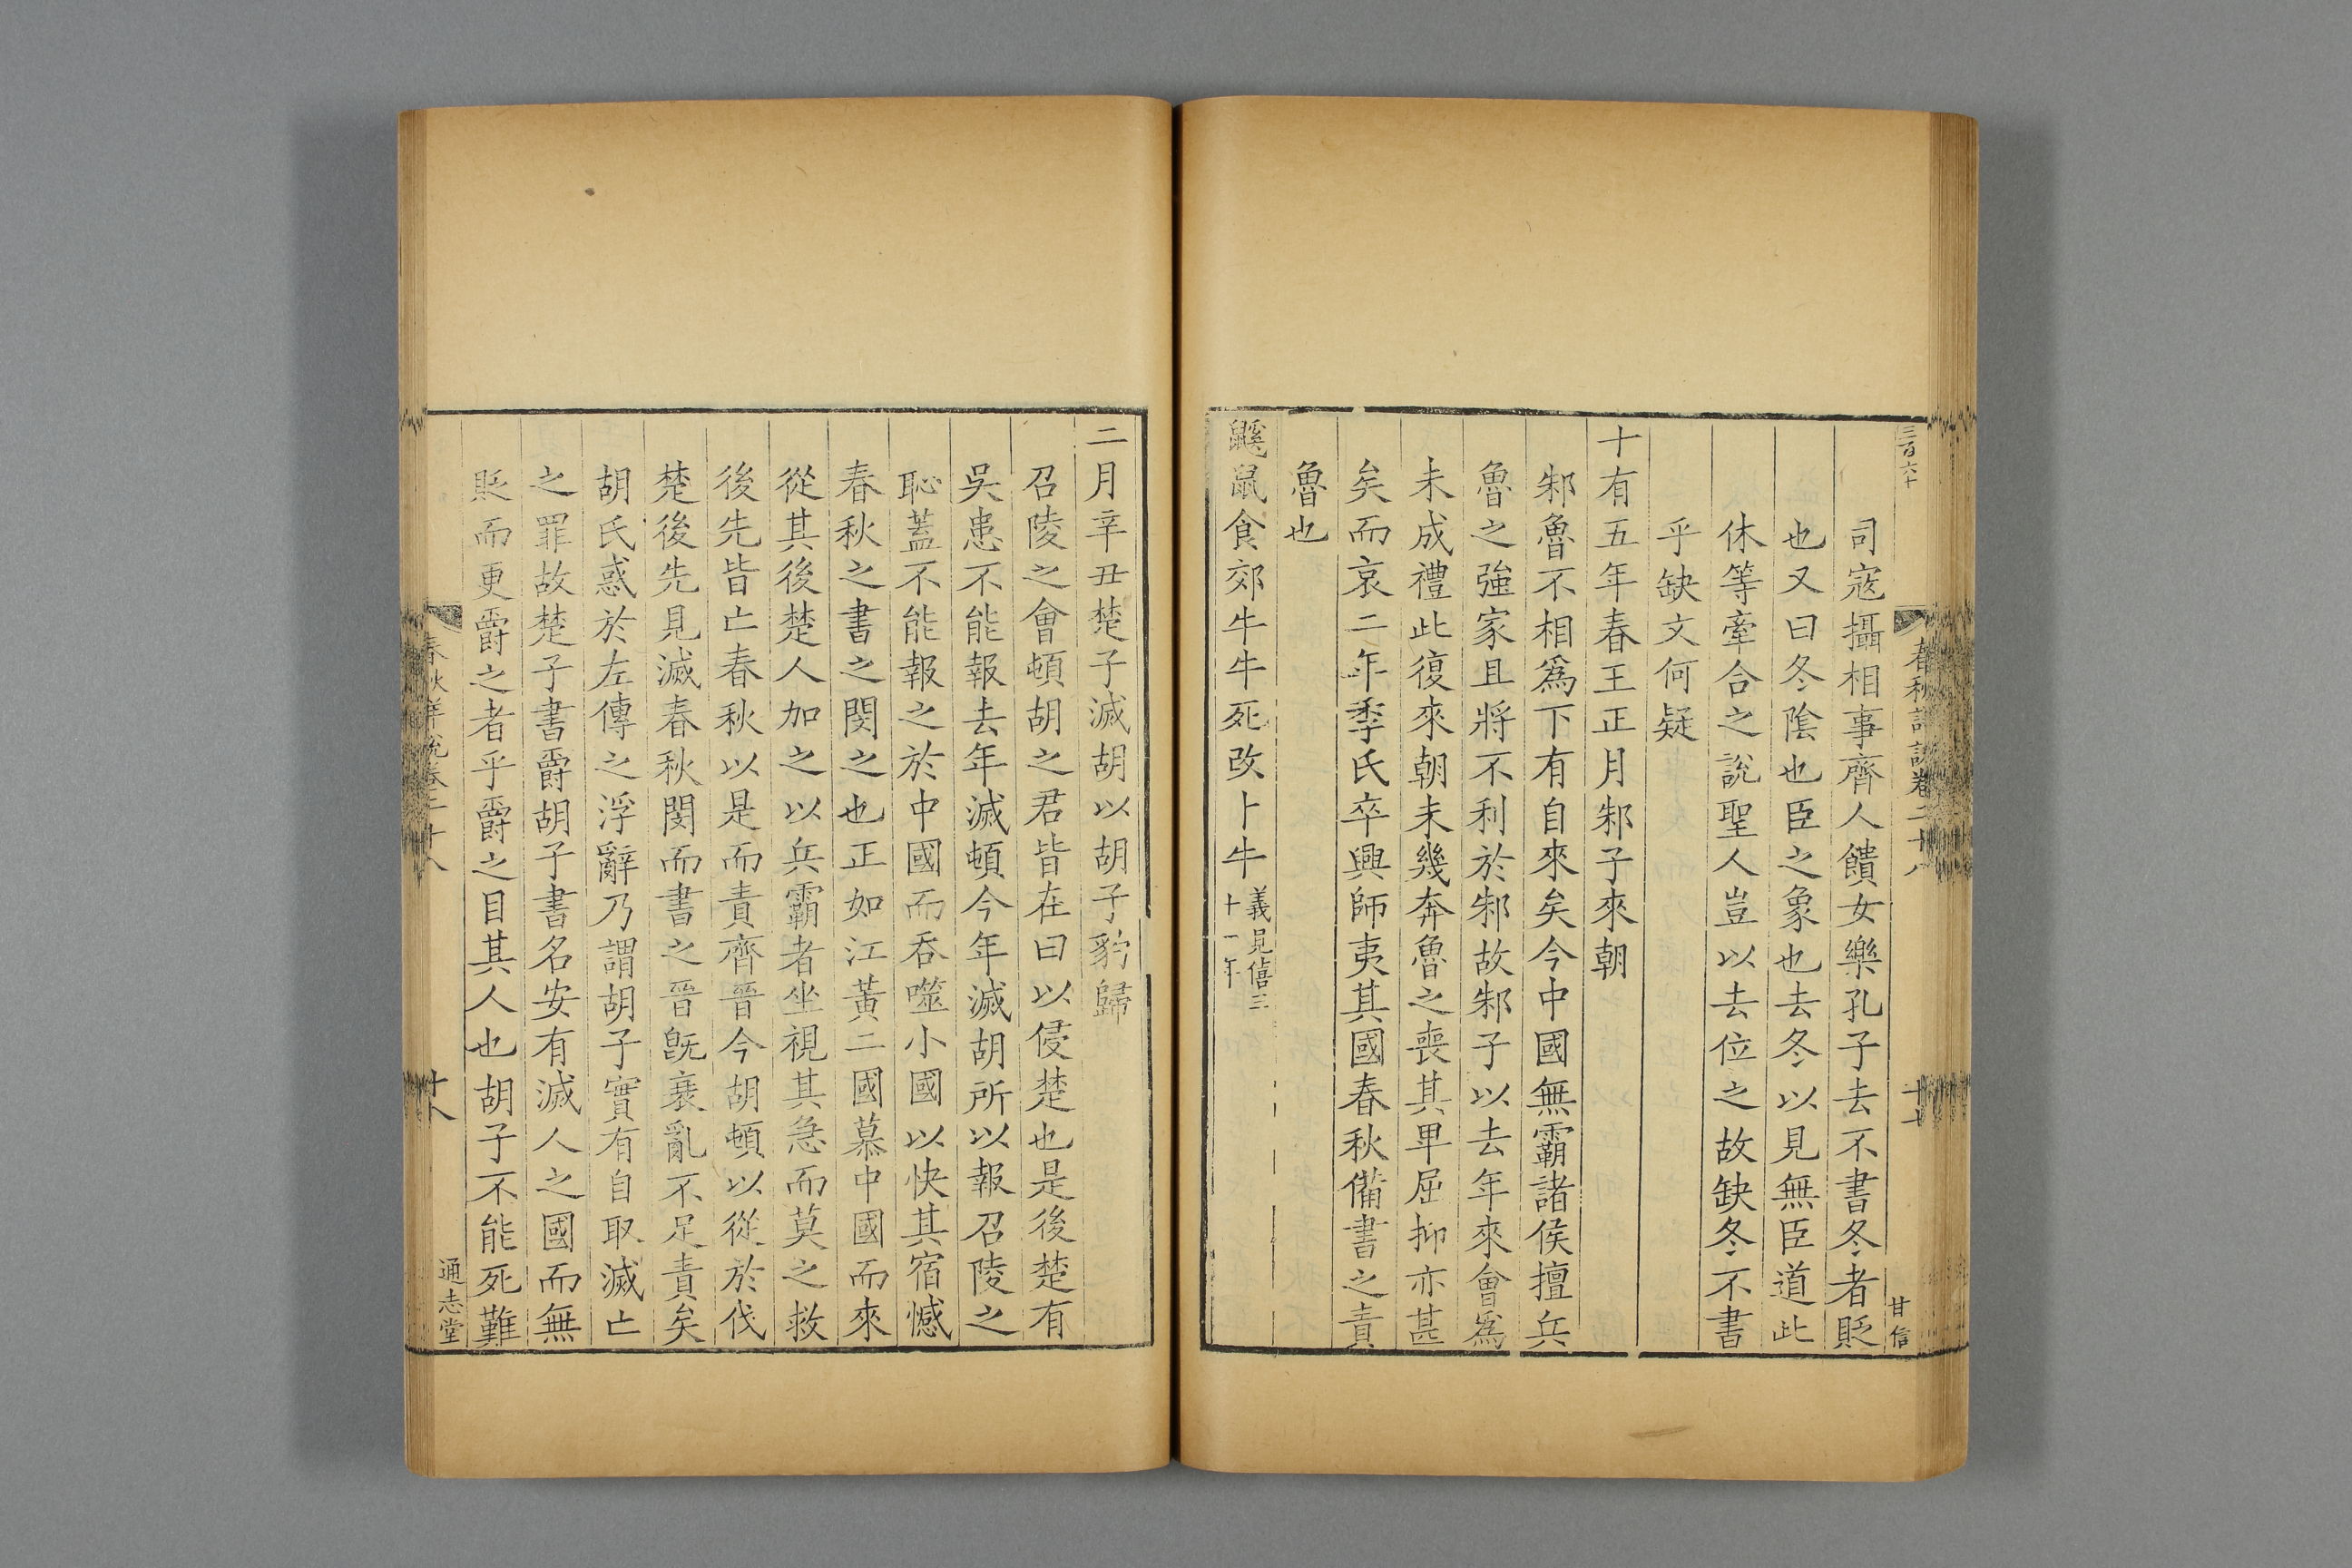 三百六十
春秋詳說卷二十八
十七
甘信
司寇攝相事齊人饋女樂孔子去不書冬者貶
也又曰冬陰也臣之象也去冬以見無臣道此
休等牽合之說聖人豈以去位之故缺冬不書
乎缺文何疑
十有五年春王正月邾子來朝
邾魯不相爲下有自來矣今中國無霸諸侯擅兵
魯之強家且將不利於邾故邾子以去年來會爲
未成禮此復來朝未幾奔魯之喪其卑屈抑亦甚
矣而哀二年季氏卒興師夷其國春秋備書之責
魯也
鼷鼠食郊牛牛死改卜牛義見僖三十一年
二月辛丑楚子滅胡以胡子豹歸
召陵之會頓胡之君皆在曰以侵楚也是後楚有
吳患不能報去年滅頓今年滅胡所以報召陵之
恥蓋不能報之於中國而吞噬小國以快其宿憾
春秋之書之閔之也正如江黃二國慕中國而來
從其後楚人加之以兵霸者坐視其急而莫之救
後先皆亡春秋以是而責齊晉今胡頓以從於伐
楚後先見滅春秋閔而書之晉旣衰亂不足責矣
胡氏惑於左傳之浮辭乃謂胡子實有自取滅亡
之罪故楚子書爵胡子書名安有滅人之國而無
貶而更爵之者乎爵之目其人也胡子不能死難
春秋詳說卷二十八
十八
通志堂